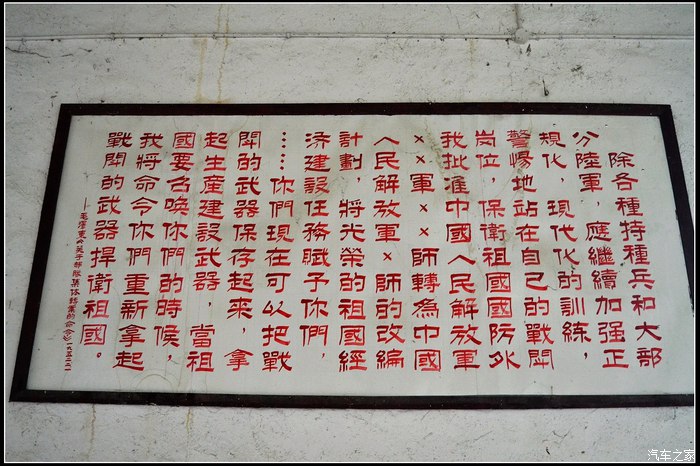 除各種特種兵和大部
分陸軍，應繼續加强正
規化，現代化的訓練，
警惕地站在自己的戰鬥
崗位，保衛祖國國防外
我批准中國人民解放軍
××軍××師轉為中國
人民解放軍×師的改編
計劃，將光榮的祖國經
济建設任務賦予你們，
……你們現在可以把戰
鬥的武器保存起來，拿
起生産建設武器，當祖
國要召唤你們的時候，
我將命令你們重新拿起
戰鬥的武器捍衛祖國。
—毛澤東《關于部隊集体轉業的命令》一九五二.二.一
汽车之家